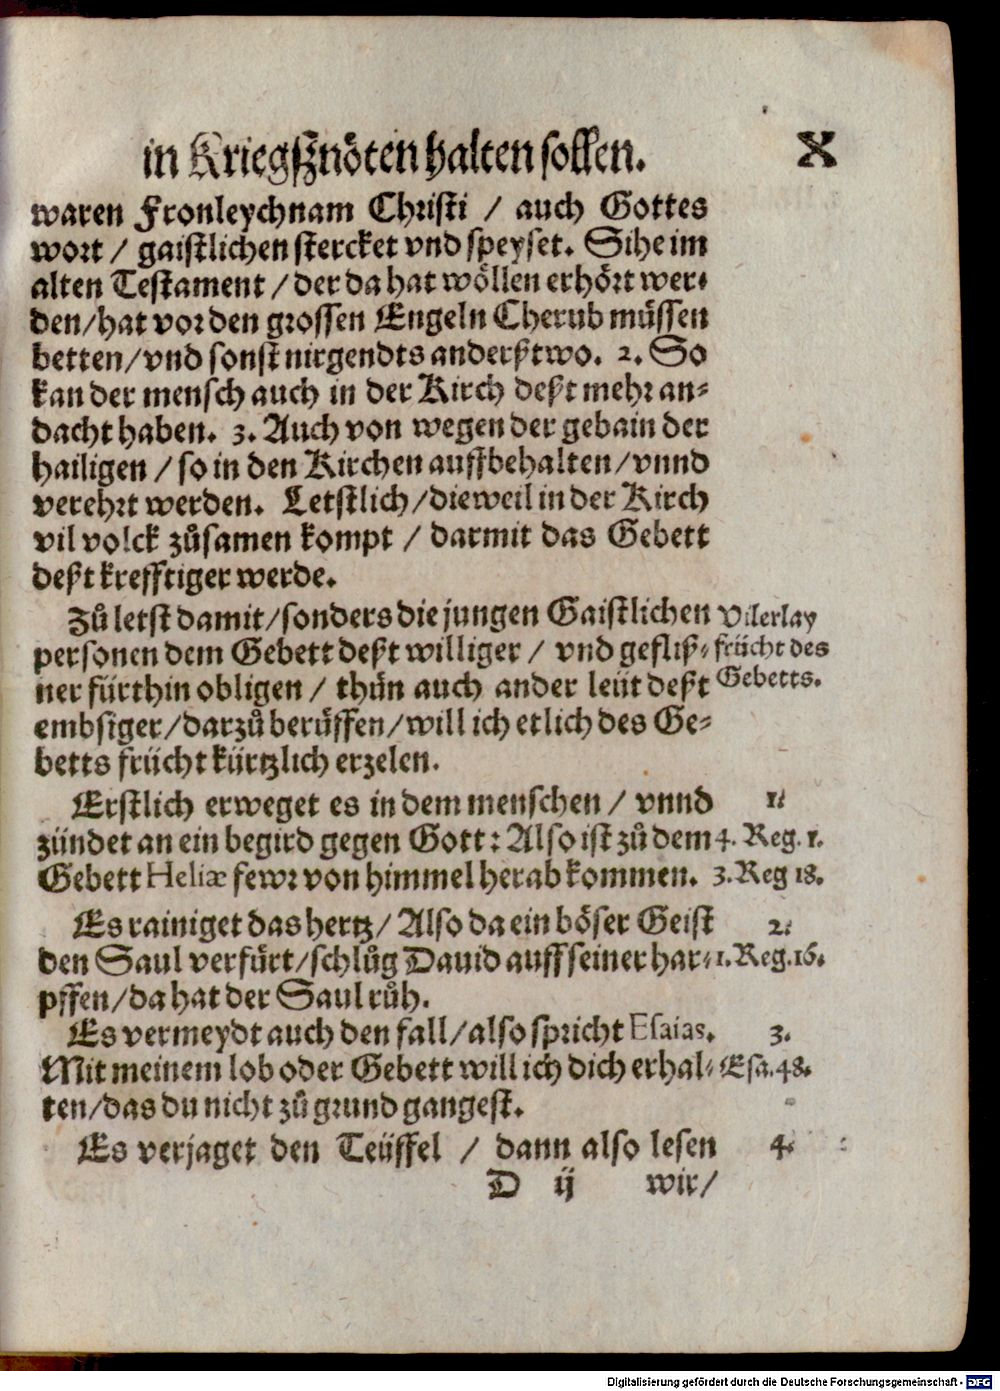 in Kriegßnöten halten sollen. X
waren Fronleychnam Christi / auch Gottes
wort / gaistlichen stercket vnd speyset. Sihe im
alten Testament / der da hat wöllen erhört wer⸗
den/hat vor den grossen Engeln Cherub müssen
betten/vnd sonst nirgendts anderßtwo. 2. So
kan der mensch auch in der Kirch deßt mehr an⸗
dacht haben. 3. Auch von wegen der gebain der
hailigen / so in den Kirchen auffbehalten/vnnd
verehrt werden. Letstlich/dieweil in der Kirch
vil volck zůsamen kompt / darmit das Gebett
deßt krefftiger werde.
Zů letst damit/sonders die jungen Gaistlichen
personen dem Gebett deßt williger / vnd gefliß⸗
ner fürthin obligen / thün auch ander leüt deßt
embsiger/darzů berüffen/will ich etlich des Ge⸗
betts frücht kürtzlich erzelen.
Vilerlay
frücht des
Gebetts.
Erstlich erweget es in dem menschen / vnnd
zündet an ein begird gegen Gott: Also ist zů dem
Gebett Heliæ fewr von himmel herab kommen.
1.
4. Reg. 1.
3. Reg 18.
Es rainiget das hertz/ Also da ein böser Geist
den Saul verfürt/schlůg Dauid auff seiner har⸗
pffen/da hat der Saul růh.
2.
1. Reg. 16.
Es vermeydt auch den fall/also spricht Esaias.
Mit meinem lob oder Gebett will ich dich erhal⸗
ten/das du nicht zů grund gangest.
3.
Esa. 48.
Es verjaget den Teüffel / dann also lesen
4.
D ij wir/
Digitalisierung gefördert durch die Deutsche Forschungsgemeinschaft - DFG